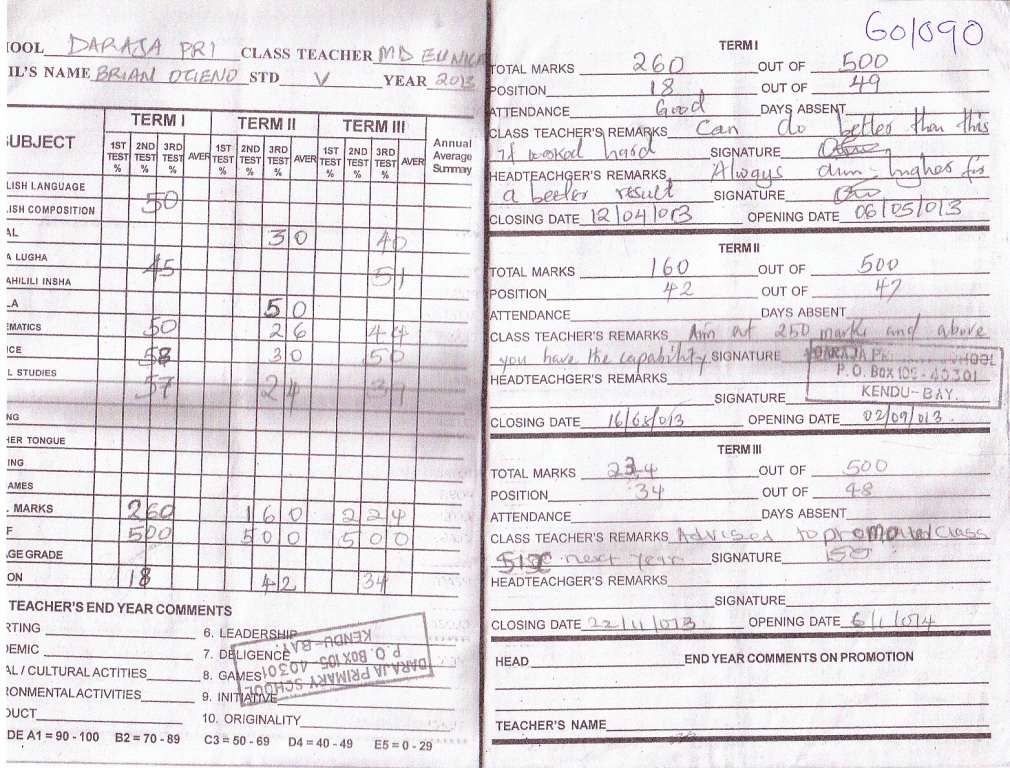 60/090
OOL DARAJA PRI CLASS TEACHER MD EUNICE
IL'S NAME BRIAN OTIENO STD V YEAR 2013
SUBJECT TERM I TERM II TERM III Annual Average Summary
1ST TEST % 2ND TEST % 3RD TEST % AVER 1ST TEST % 2ND TEST % 3RD TEST % AVER 1ST TEST % 2ND TEST % 3RD TEST % AVER
LISH LANGUAGE
LISH COMPOSITION 50
AL 30 40
A LUGHA
AHILILI INSHA 45 51
LA 50
EMATICS 50 26 44
ICE 58 30 50
L STUDIES 57 24 39
NG
HER TONGUE
ING
AMES
. MARKS 260 160 224
F 500 500 500
AGE GRADE
ON 18 42 34
TEACHER'S END YEAR COMMENTS
RTING 6. LEADERSHIP
DEMIC 7. DELIGENCE
AL / CULTURAL ACTITIES 8. GAMES
RONMENTAL ACTIVITIES 9. INITIATIVE
DUCT 10. ORIGINALITY
DARAJA PRIMARY SCHOOL
P. O. BOX 105-40301
KENDU-BAY.
DE A1 = 90 - 100 B2 = 70 - 89 C3 = 50 - 69 D4 = 40 - 49 E5 = 0 - 29
TERM I
TOTAL MARKS 260 OUT OF 500
POSITION 18 OUT OF 49
ATTENDANCE Good DAYS ABSENT
CLASS TEACHER'S REMARKS Can do better than this
if worked hard SIGNATURE
HEADTEACHER'S REMARKS Always aim higher for
a beeter result SIGNATURE
CLOSING DATE 12/04/013 OPENING DATE 06/05/013
TERM II
TOTAL MARKS 160 OUT OF 500
POSITION 42 OUT OF 47
ATTENDANCE DAYS ABSENT
CLASS TEACHER'S REMARKS Aim at 250 marks and above
you have the capability SIGNATURE
HEADTEACHGER'S REMARKS
SIGNATURE
DARAJA PR HOOL
P. O. Box 105 - 40301
KENDU-BAY.
CLOSING DATE 16/08/013 OPENING DATE 02/09/013
TERM III
TOTAL MARKS 224 OUT OF 500
POSITION 34 OUT OF 48
ATTENDANCE DAYS ABSENT
CLASS TEACHER'S REMARKS Advised to promoted Class
SIX next Year SIGNATURE
HEADTEACHGER'S REMARKS
SIGNATURE
CLOSING DATE 22/11/013 OPENING DATE 6/1/014
HEAD END YEAR COMMENTS ON PROMOTION
TEACHER'S NAME